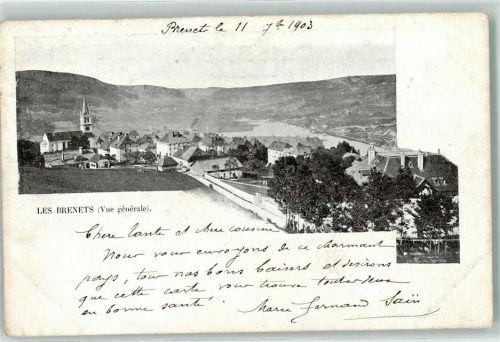 Brenets le 11 7bre 1903
LES BRENETS (Vue générale).
Chère tante et chère cousine
Nous vous envoyons de ce charmant
pays, tous nos bons baisers et désirons
que cette carte vous trouve toutes deux
en bonne santé! Marie Fernand Saïn